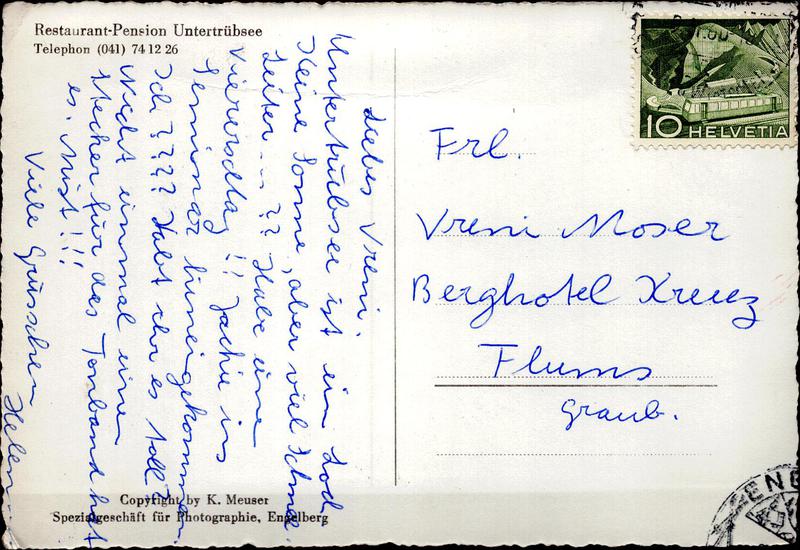 Restaurant-Pension Untertrübsee
Telephon (041) 74 12 26
Liebes Vreni.
Untertrübsee ist ein Loch
Keine Sonne, aber viel Schnee.
Leiter ... ?? Habe eine
Viererschlag !!
Seminar hineingekommen
Ich ???? Habt ihr es toll?
Nicht einmal einen
Stecher für das Tonband hat
es. Mist!!!
Viele Grüsschen
Helen
Copyright by K. Meuser
Spezialgeschäft für Photographie, Engelberg
10 HELVETIA
Frl.
Vreni Moser
Berghotel Kreuz
Flums
Graub.
ENGE